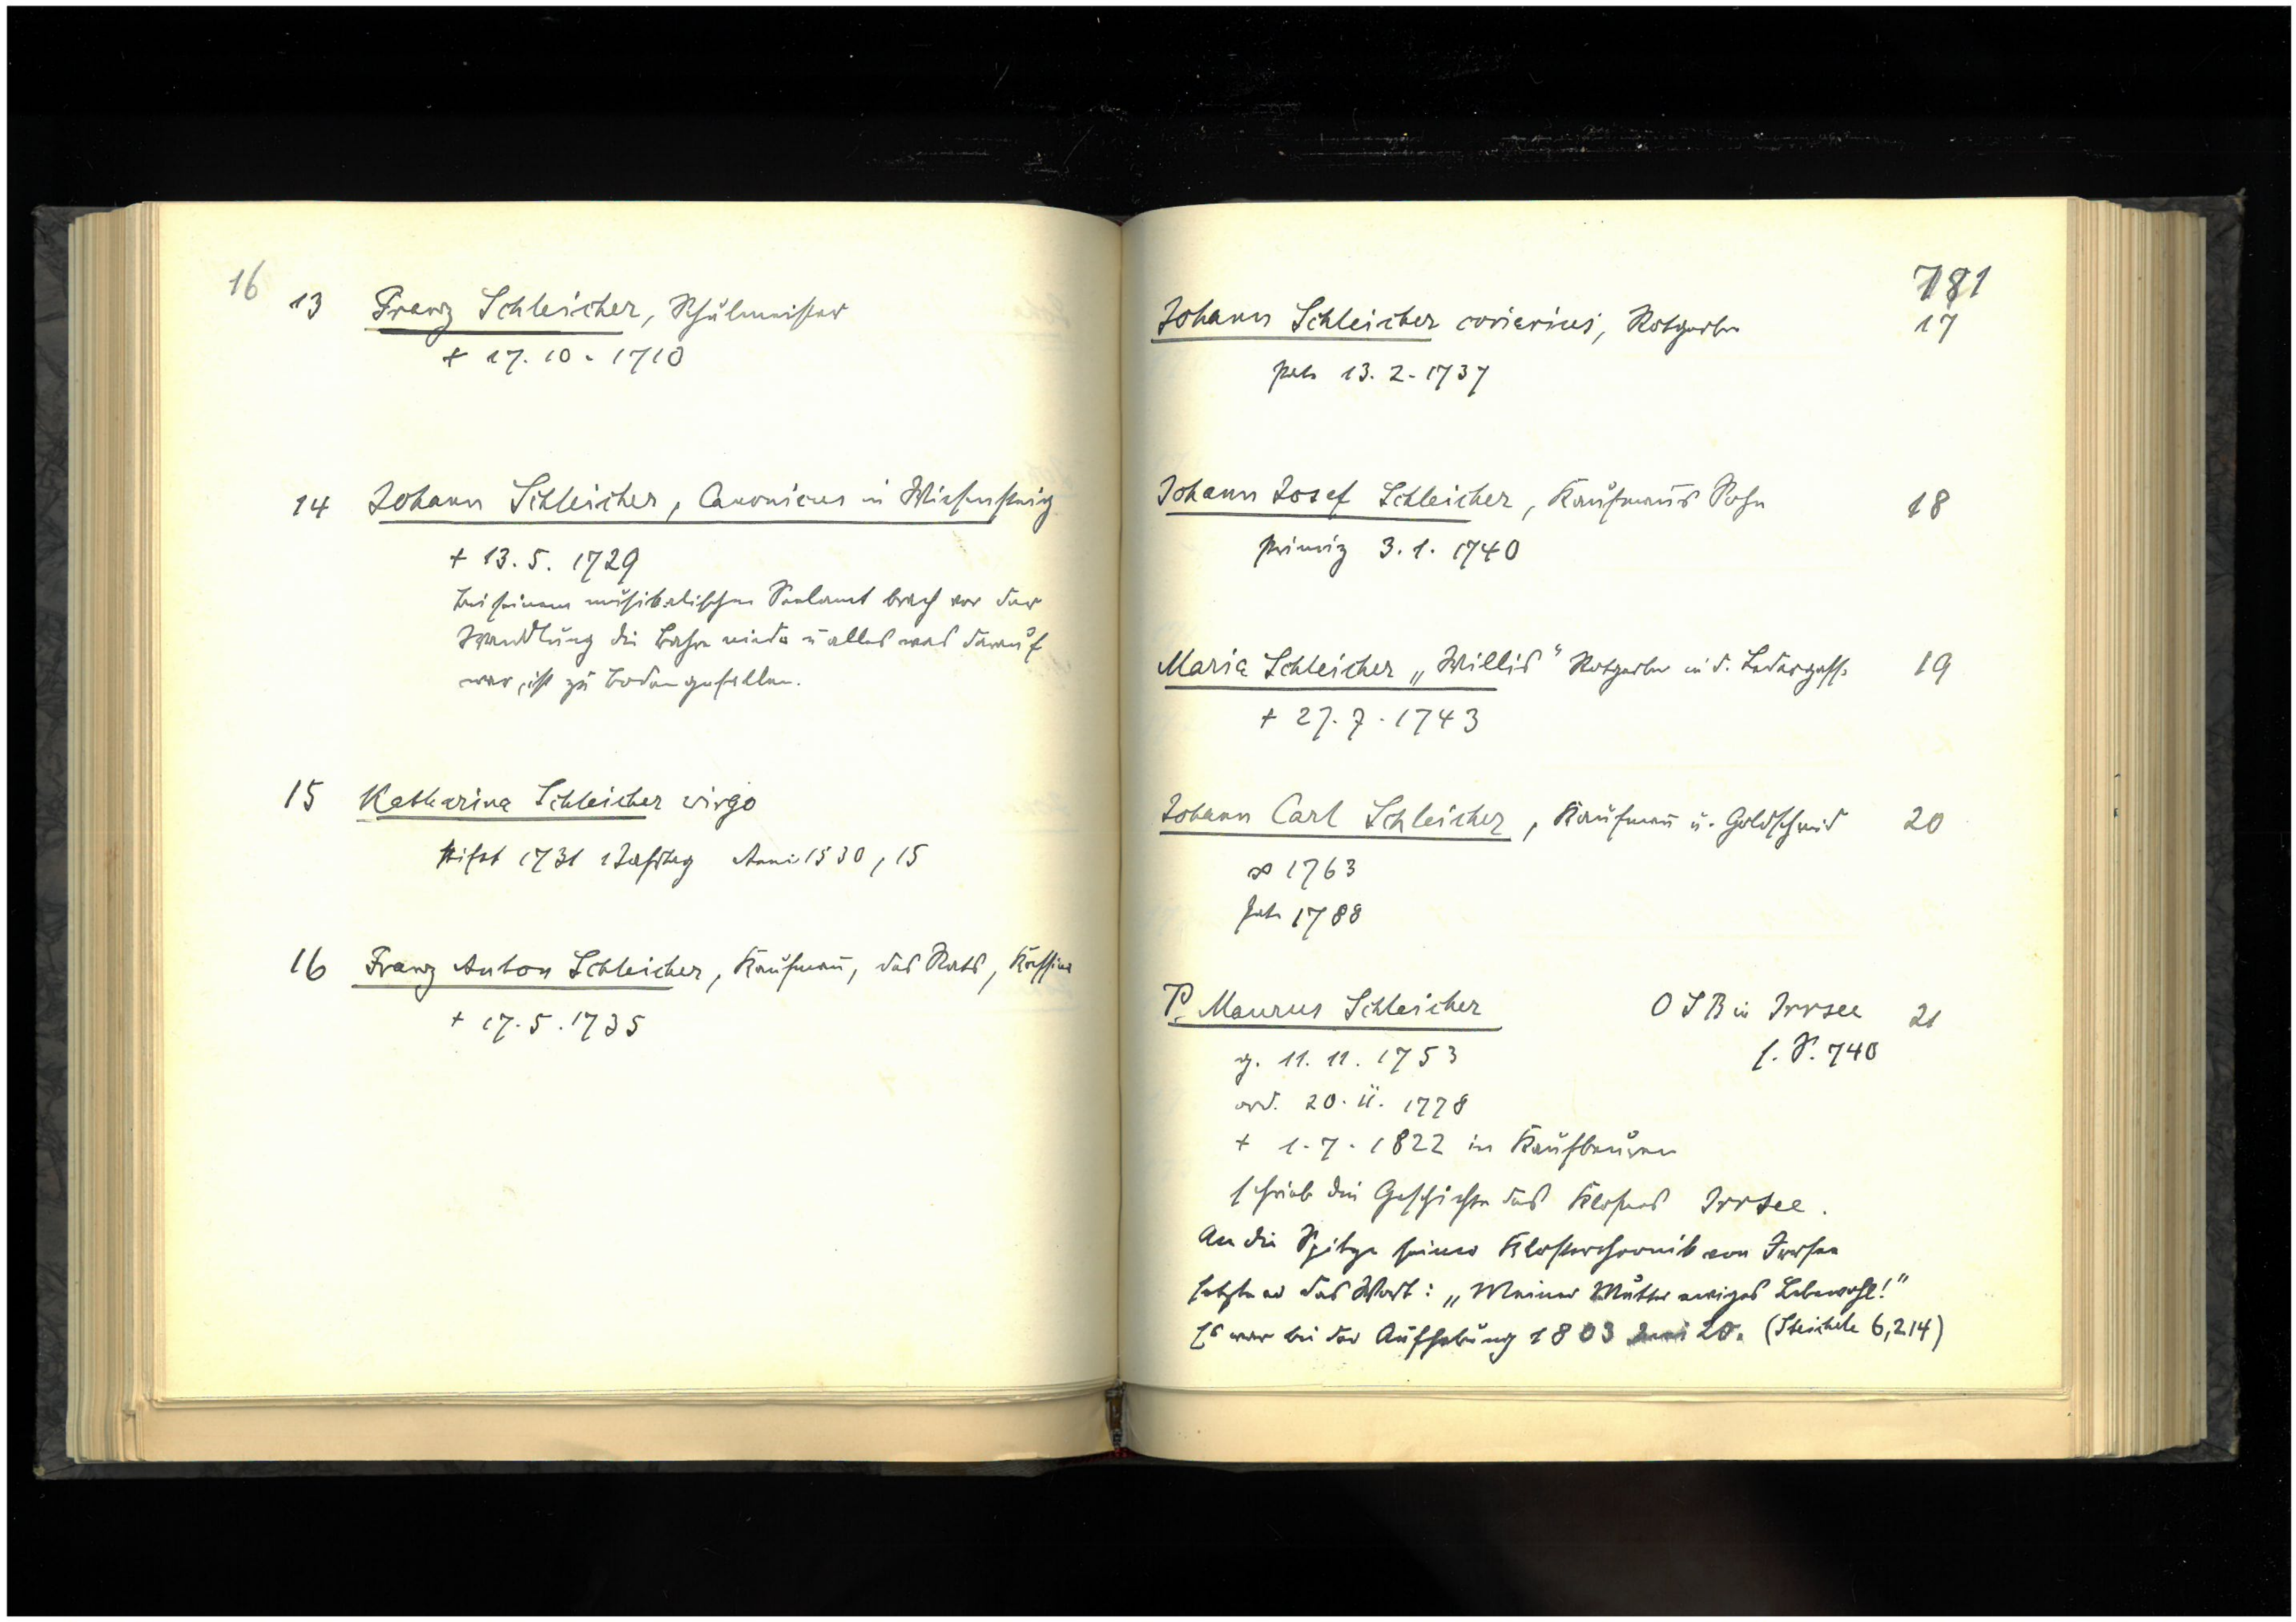 16
13 Franz Schleicher, Schulmeister
+ 17. 10. 1710
14 Johann Schleicher, Canonicus in Wiesensteig
+ 13. 5. 1729
bei seinem musikalischen Seelamt brach vor der
Wandlung die Bahre nieder u alles was darauf
war, ist zu Boden gefallen.
15 Katharina Schleicher virgo
stiftet 1731 1 Jahrtag 1530, 15
16 Franz Anton Schleicher, Kaufmann, des Rats,
+ 17. 5. 1735
781
Johann Schleicher coriarius, Rotgerber 17
13. 2. 1737
Johann Josef Schleicher, Kaufmanns Sohn 18
Primiz 3. 1. 1740
Maria Schleicher „Willis“ Rotgerber in d. Ledergasse 19
+ 27. 7. 1743
Johann Carl Schleicher, Kaufmann u. Goldschmid 20
∞ 1763
1788
P. Maurus Schleicher OSB in Irrsee 21
s. S. 740
g. 11. 11. 1753
ord. 20. II. 1778
+ 1. 7. 1822 in Kaufbeuren
schrieb die Geschichte des Klosters Irrsee.
An die Spitze seiner Klosterchronik von Irrsee
setzte er das Wort: „Meiner Mutter ewiges Lebewohl!“
Es war bei der Aufhebung 1803 20. (Steichele 6,214)